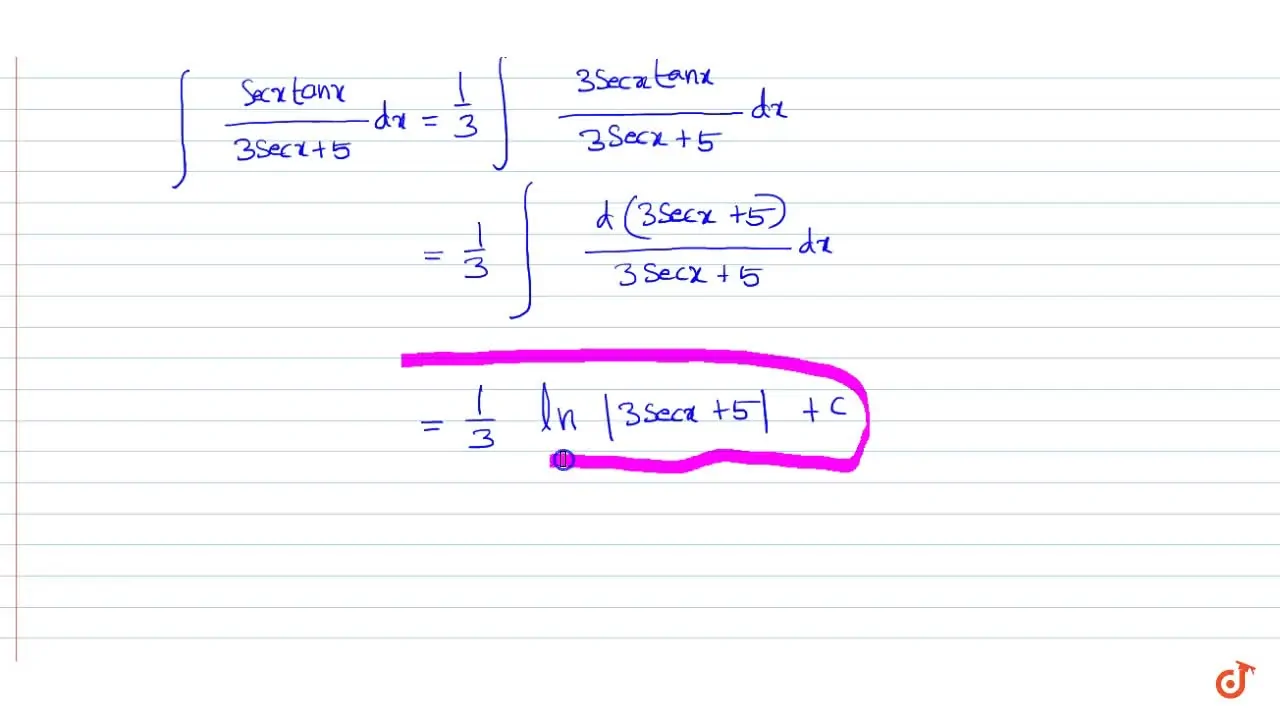 ∫ secx tanx / 3secx + 5 dx = 1/3 ∫ 3secx tanx / 3secx + 5 dx
= 1/3 ∫ d(3secx + 5) / 3secx + 5 dx
= 1/3 ln |3secx + 5| + c